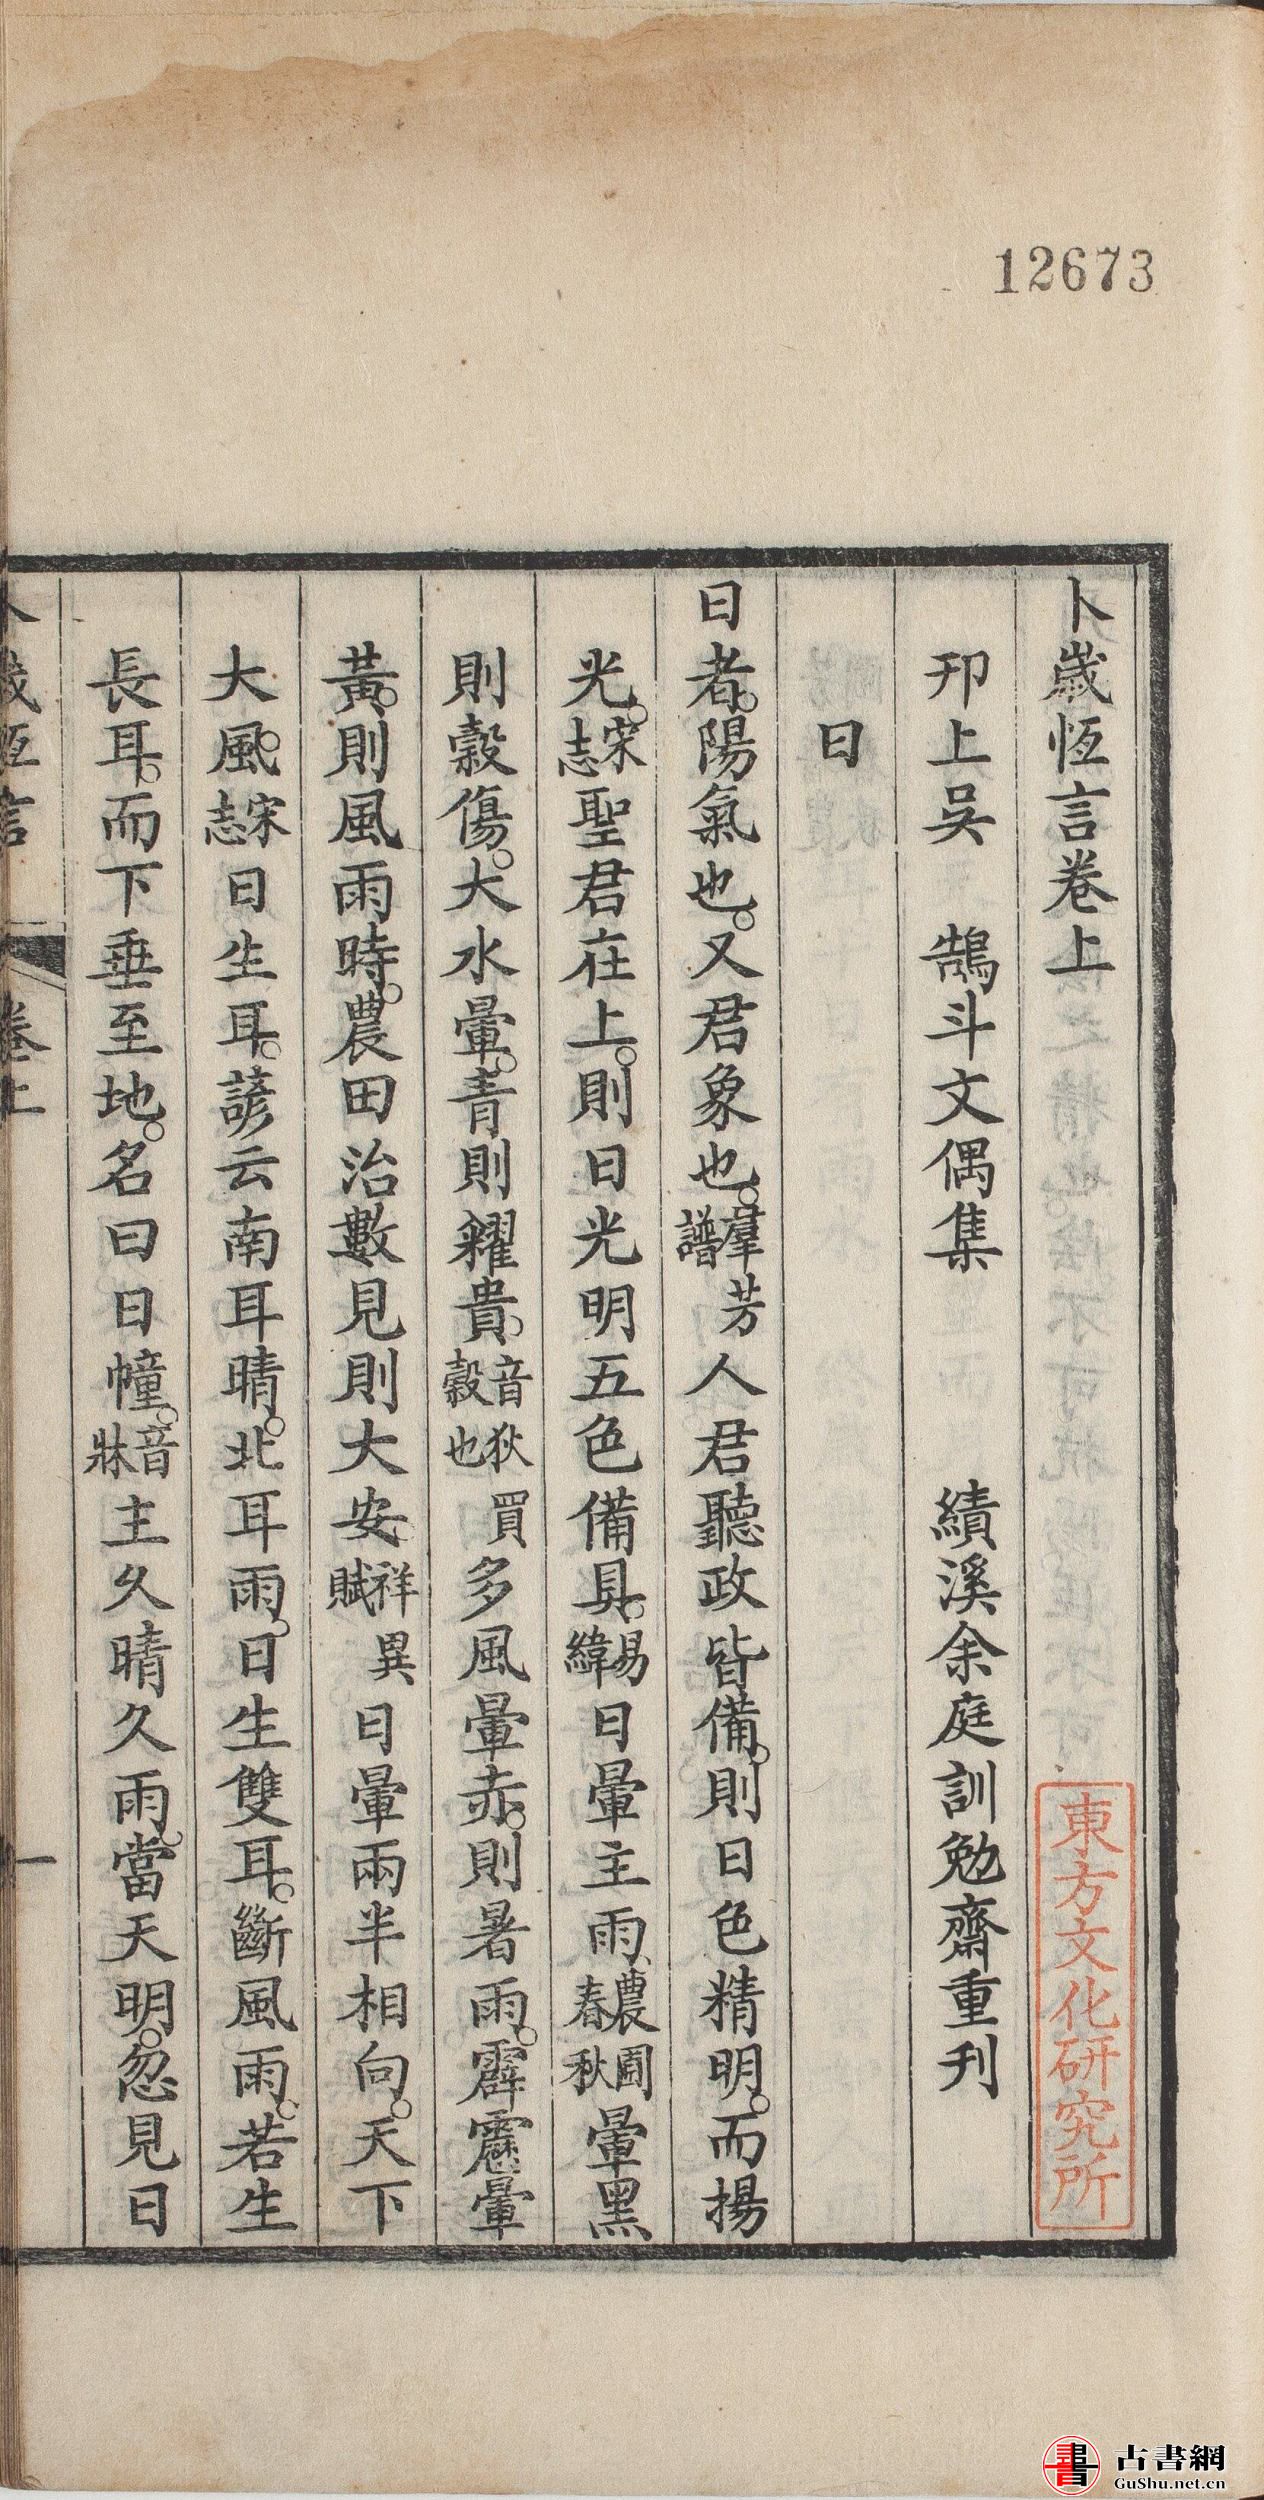 12673
卜歲恆言卷上
東方文化研究所
邗上吳 鵠斗文偶集 績溪余庭訓勉齋重刊
日
日者。陽氣也。又君象也。羣芳譜人君聽政皆備。則日色精明。而揚
光。宋志聖君在上。則日光明五色備具。易緯日暈主雨、農圃春秋暈黑
則穀傷。大水暈。青則糴貴。音狄買穀也多風暈赤。則暑雨。霹靂暈
黃。則風雨時。農田治數見則大安。祥異賦日暈兩半相向。天下
大風。宋志日生耳。諺云南耳晴。北耳雨。日生雙耳。斷風雨。若生
長耳。而下垂至地。名曰日幢。音牀主久晴久雨。當天明。忽見日
卜歲恆言 卷上 一
古書網
GuShu.net.cn